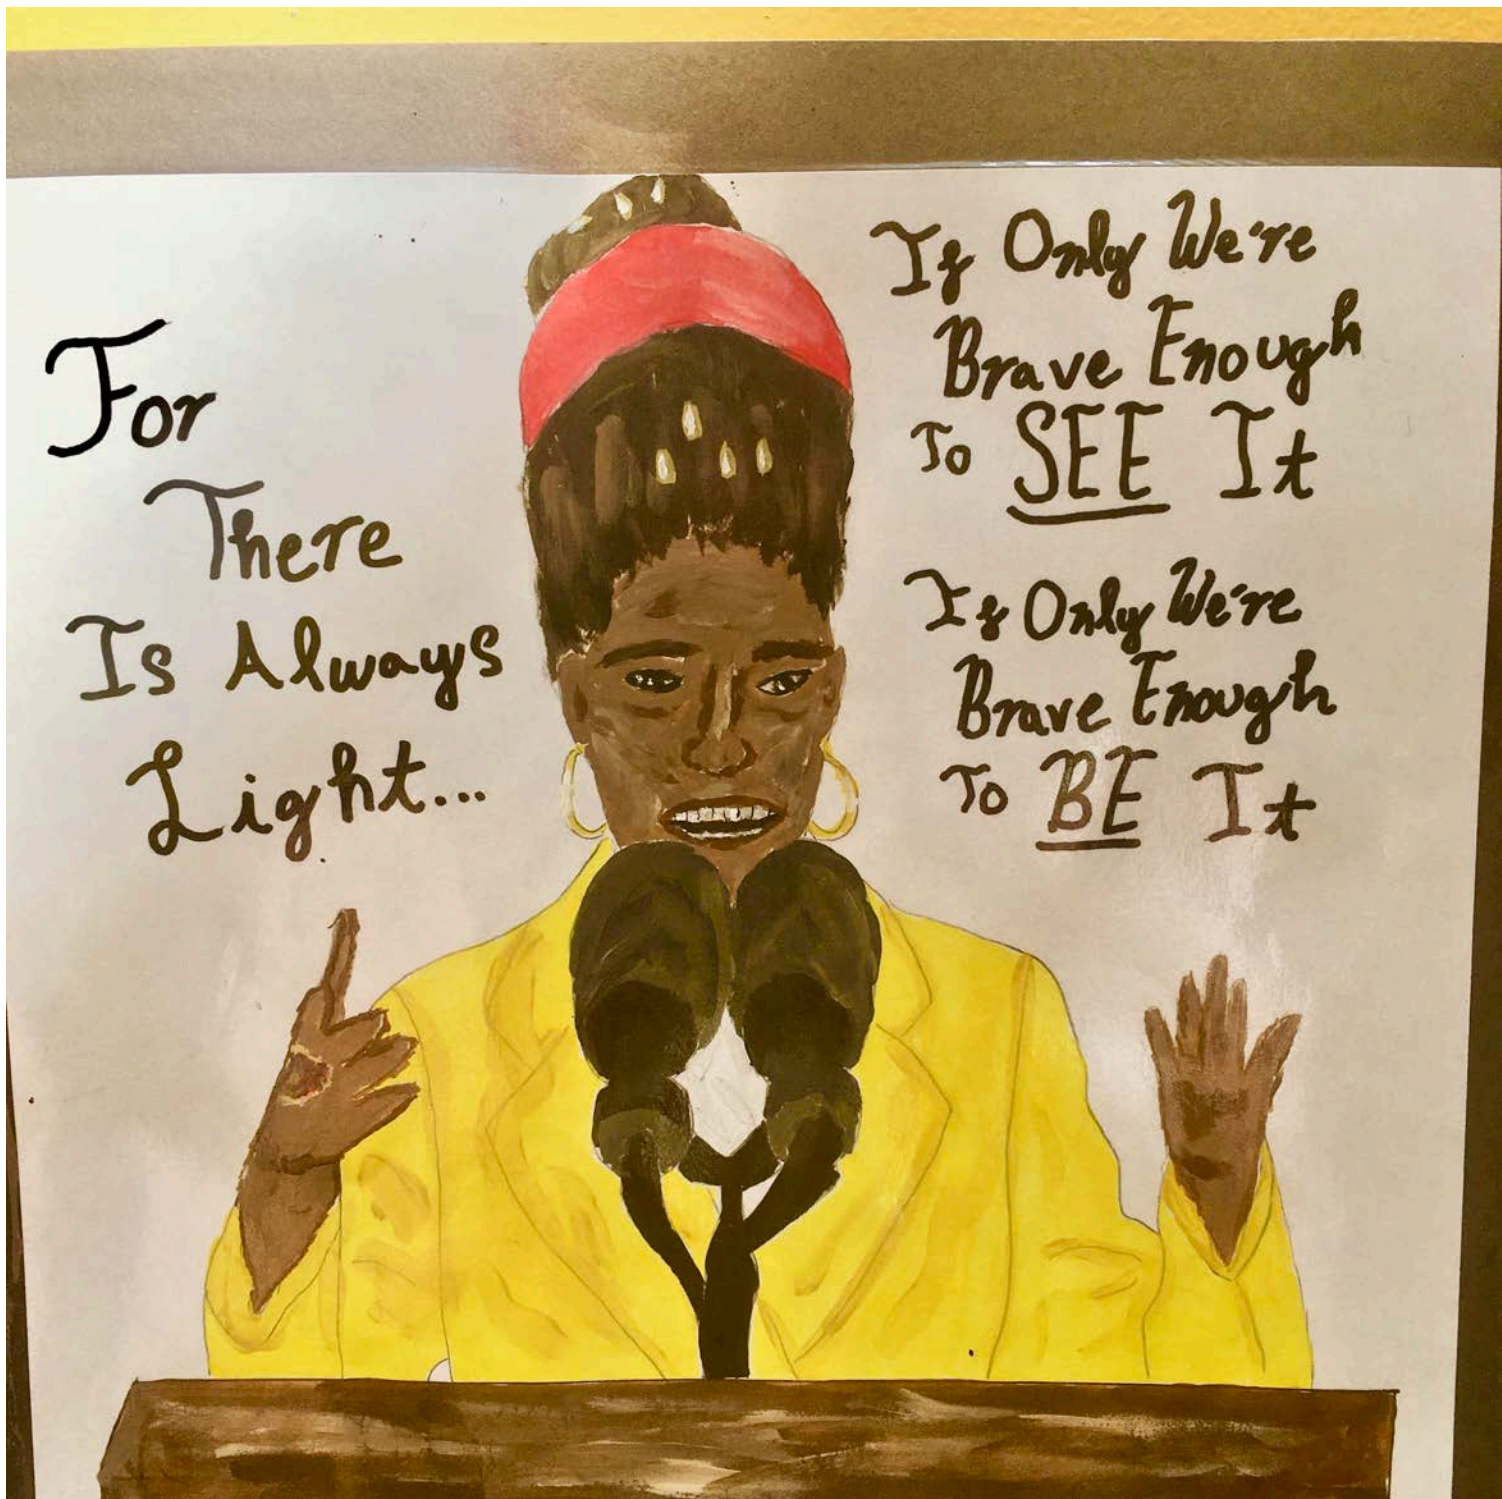 For
There
Is Always
Light...
If Only We're
Brave Enough
To SEE It
If Only We're
Brave Enough
To BE It